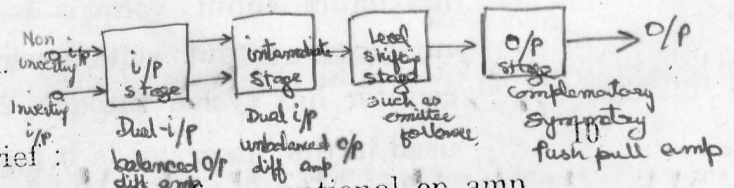 Non
inverting i/p
Inverting
i/p.
i/p
stage
Dual-i/p
balanced O/p
diff amp
intermediate
stage
Dual i/p
unbalanced O/p
diff amp
Level
shifting
stage
such as
emitter
follower
O/p
stage
complementary
symmetry
push pull amp
O/p
rief :
rational op amp